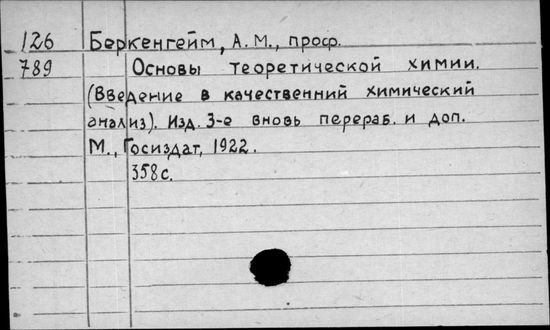 126 Беркенгейм, А. М., проф.
789 Основы теоретической химии.
(Введение в качественний химический
анализ). Изд. 3-е вновь перераб. и доп.
М., Госиздат, 1922.
358с.